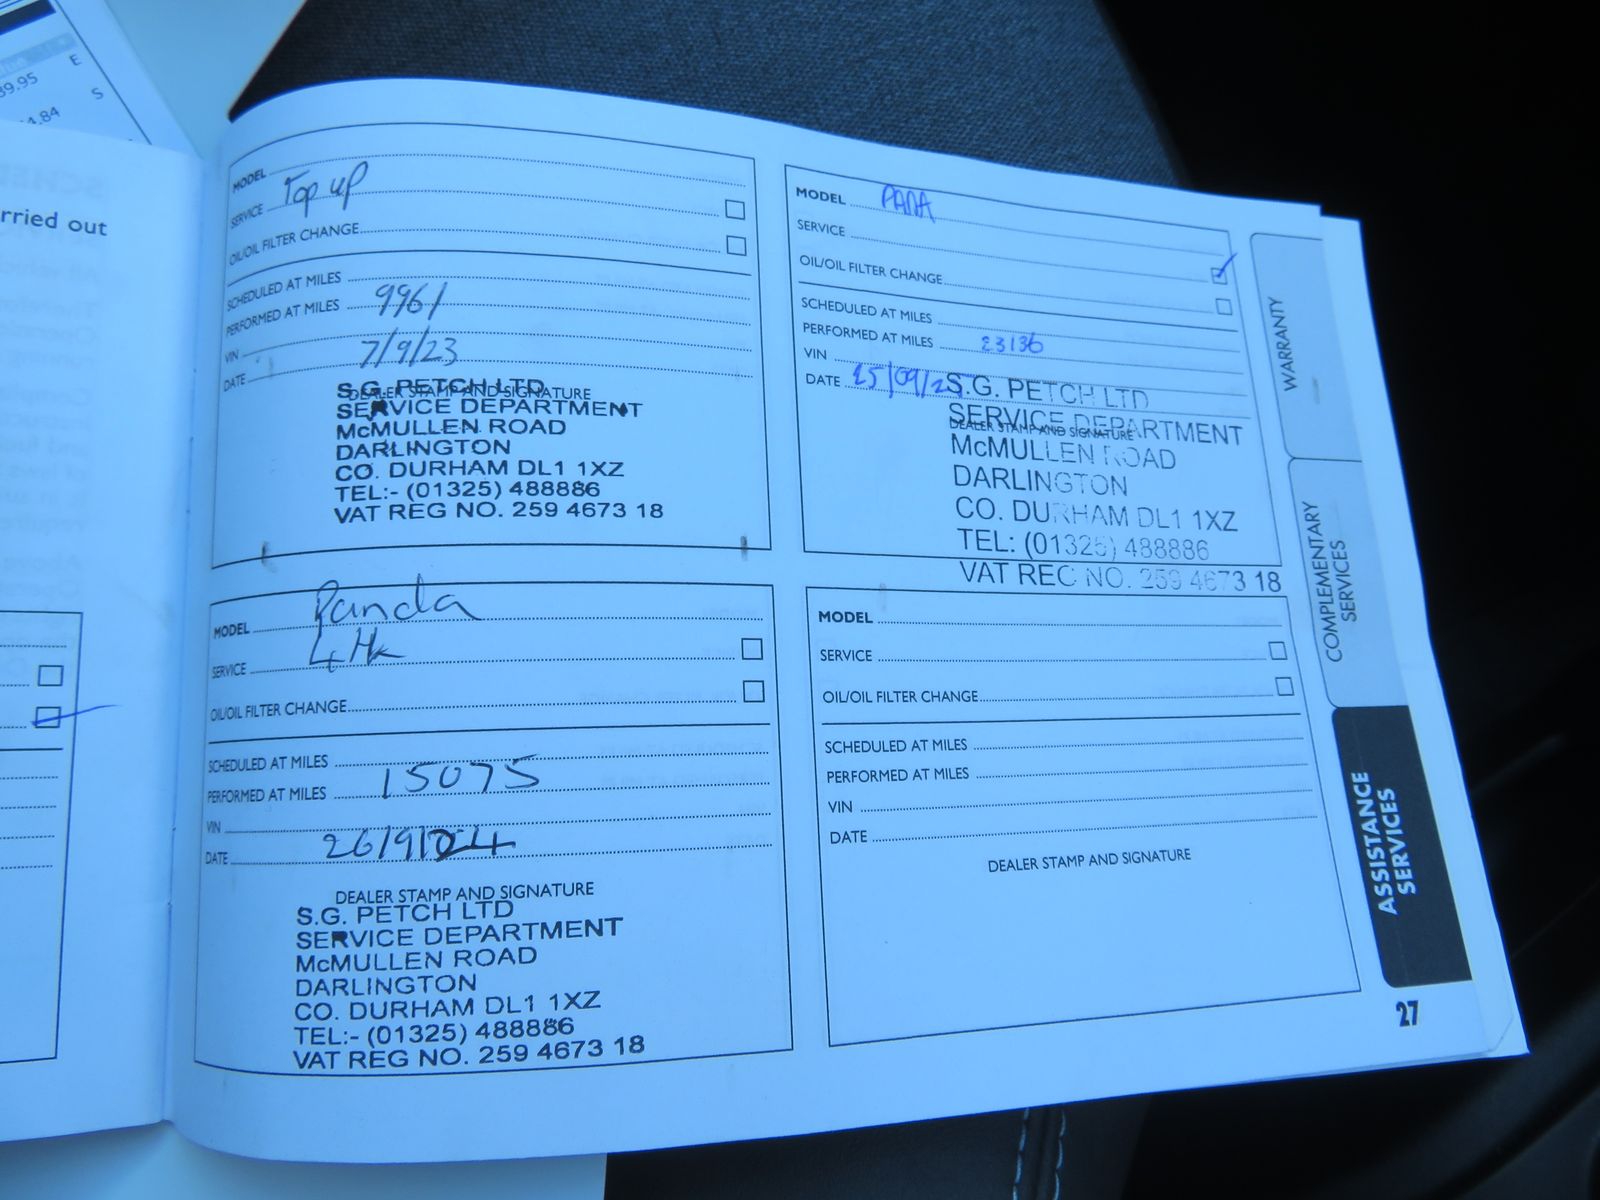 39.95 E
4.84 S
rried out
MODEL
SERVICE Top up
OIL/OIL FILTER CHANGE
SCHEDULED AT MILES
PERFORMED AT MILES 9961
VIN
DATE 7/9/23
DEALER STAMP AND SIGNATURE
S.G. PETCH LTD
SERVICE DEPARTMENT
McMULLEN ROAD
DARLINGTON
CO. DURHAM DL1 1XZ
TEL:- (01325) 488886
VAT REG NO. 259 4673 18
MODEL Panda
SERVICE
OIL/OIL FILTER CHANGE
SCHEDULED AT MILES
PERFORMED AT MILES 15075
VIN
DATE 26/9/24
DEALER STAMP AND SIGNATURE
S.G. PETCH LTD
SERVICE DEPARTMENT
McMULLEN ROAD
DARLINGTON
CO. DURHAM DL1 1XZ
TEL:- (01325) 488886
VAT REG NO. 259 4673 18
MODEL
SERVICE
OIL/OIL FILTER CHANGE
SCHEDULED AT MILES
PERFORMED AT MILES 23136
VIN
DATE
DEALER STAMP AND SIGNATURE
S.G. PETCH LTD
SERVICE DEPARTMENT
McMULLEN ROAD
DARLINGTON
CO. DURHAM DL1 1XZ
TEL: (01325) 488886
VAT REG NO. 259 4673 18
MODEL
SERVICE
OIL/OIL FILTER CHANGE
SCHEDULED AT MILES
PERFORMED AT MILES
VIN
DATE
DEALER STAMP AND SIGNATURE
WARRANTY
COMPLEMENTARY
SERVICES
ASSISTANCE
SERVICES
27